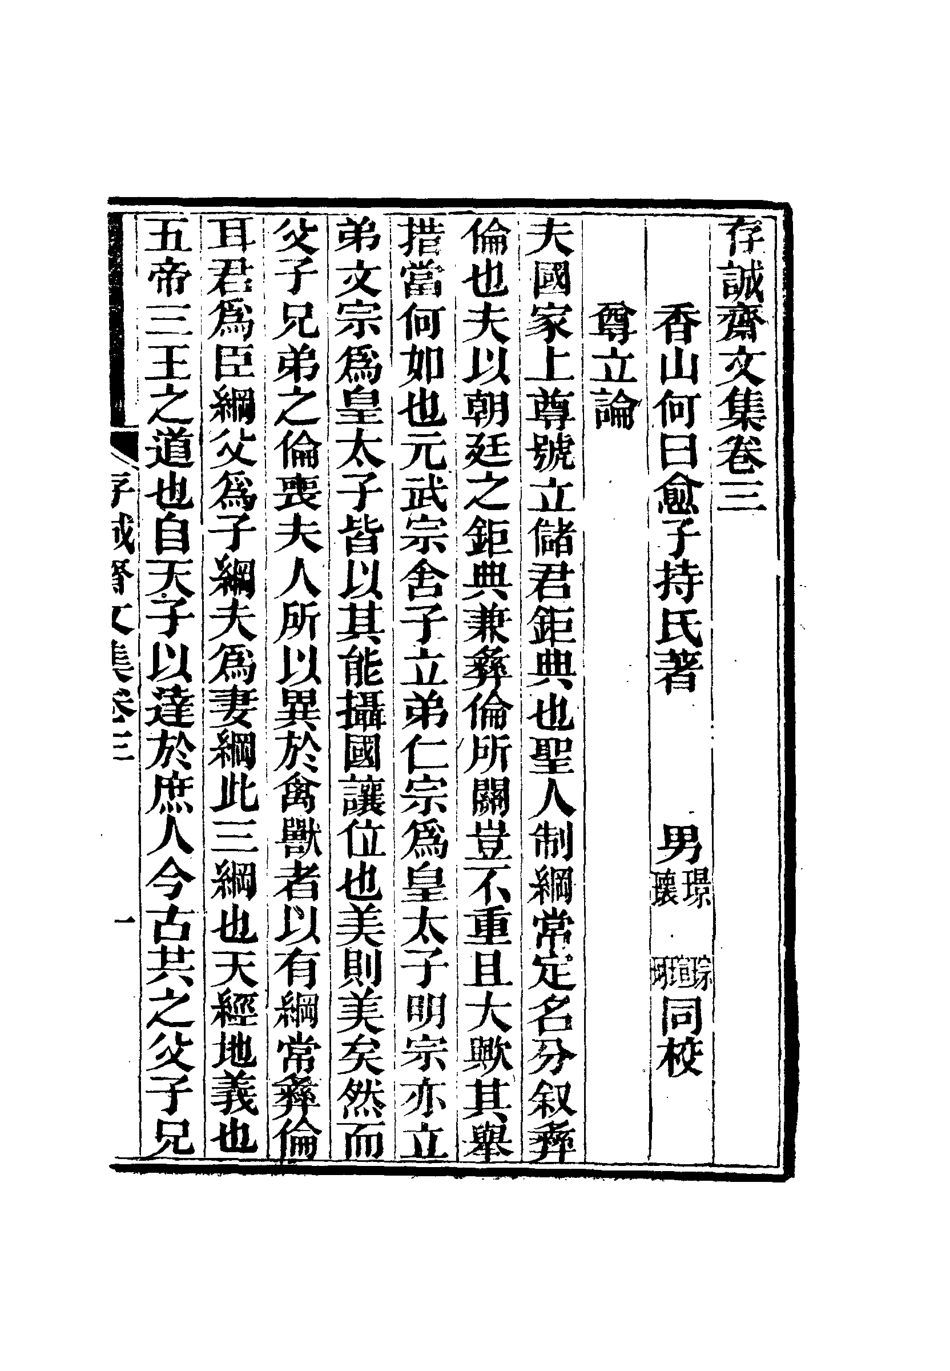 存誠齋文集卷三
香山何曰愈子持氏著　男璟瓌　琮瑄珮同校
尊立論
夫國家上尊號立儲君鉅典也聖人制綱常定名分叙彝
倫也夫以朝廷之鉅典兼彝倫所關豈不重且大歟其舉
措當何如也元武宗舍子立弟仁宗爲皇太子明宗亦立
弟文宗爲皇太子皆以其能攝國讓位也美則美矣然而
父子兄弟之倫喪夫人所以異於禽獸者以有綱常彝倫
耳君爲臣綱父爲子綱夫爲妻綱此三綱也天經地義也
五帝三王之道也自天子以達於庶人今古共之父子兄
存誠齋文集卷三　一